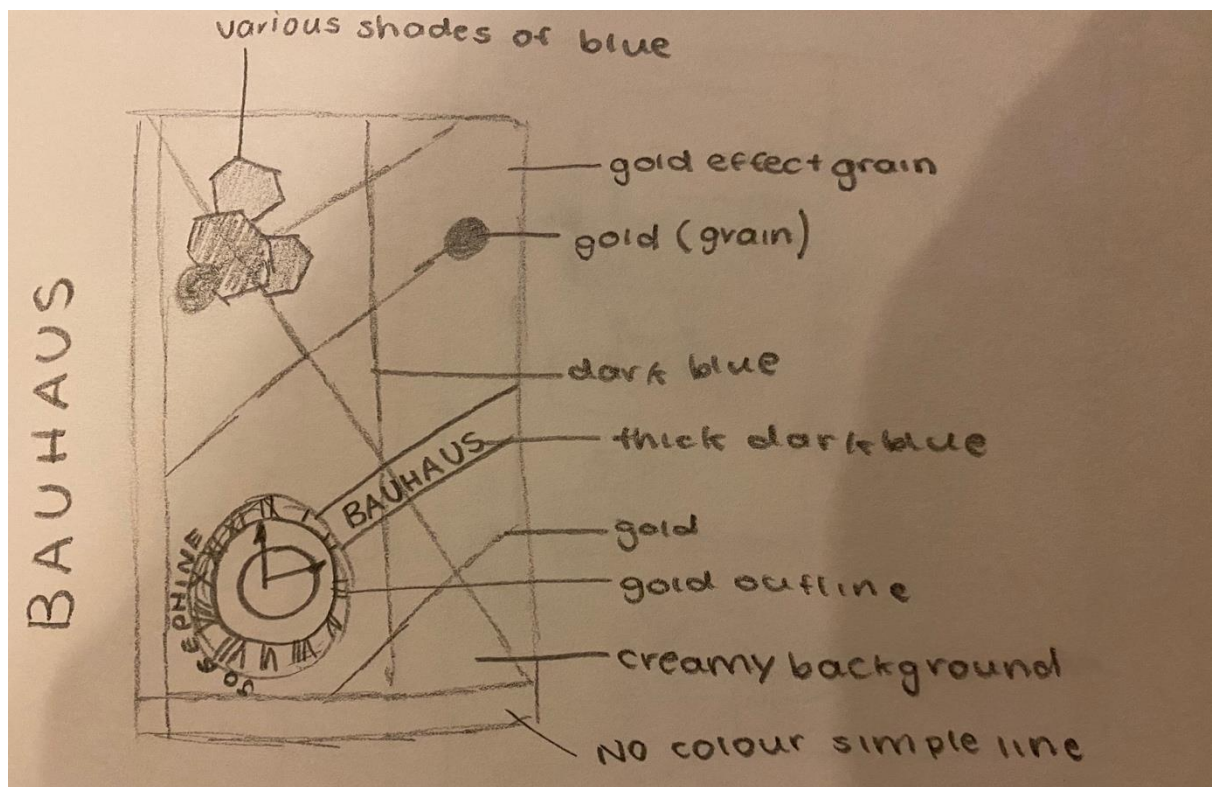 various shades of blue
gold effect grain
gold (grain)
dark blue
BAUHAUS
thick dark blue
BAUHAUS
gold
JOSEPHINE
gold outline
creamy background
NO colour simple line